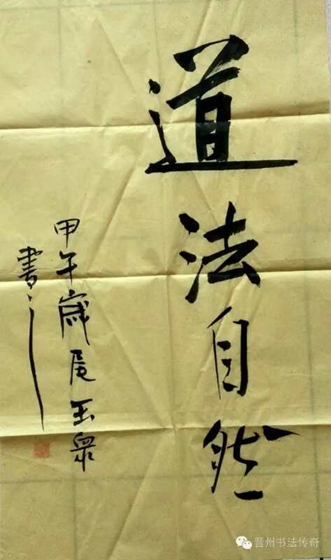 道法自然
甲午岁尾玉众
書之
晋州书法传奇